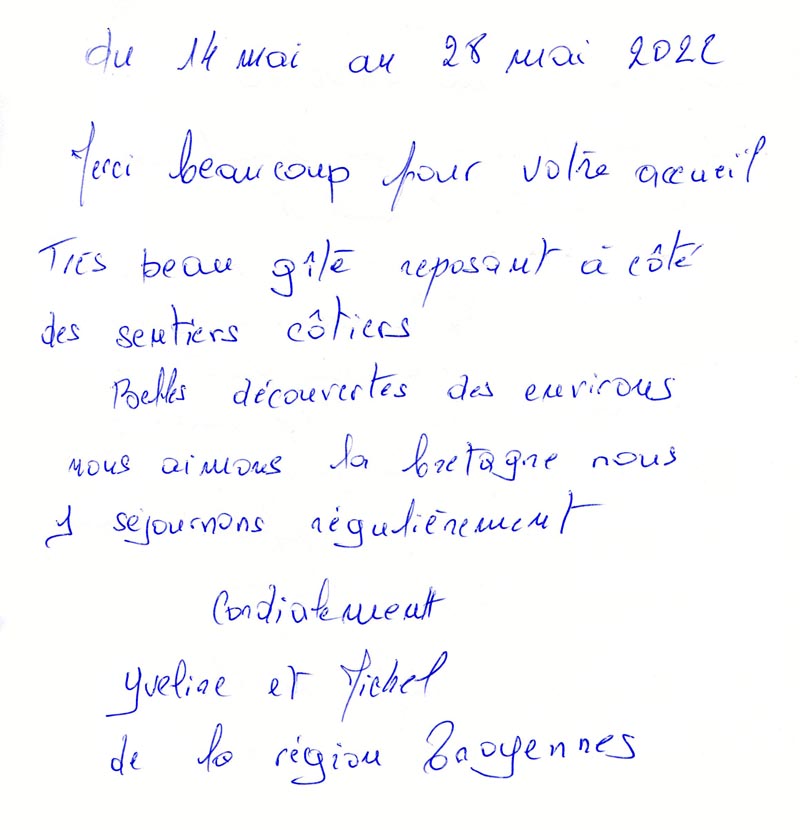 du 14 mai au 28 mai 2022
Merci beaucoup pour votre accueil
Très beau gîte reposant à côté
des sentiers côtiers
Belles découvertes des environs
nous aimons la bretagne nous
y séjournons régulièrement
Cordialement
Yveline et Michel
de la région Troyennes